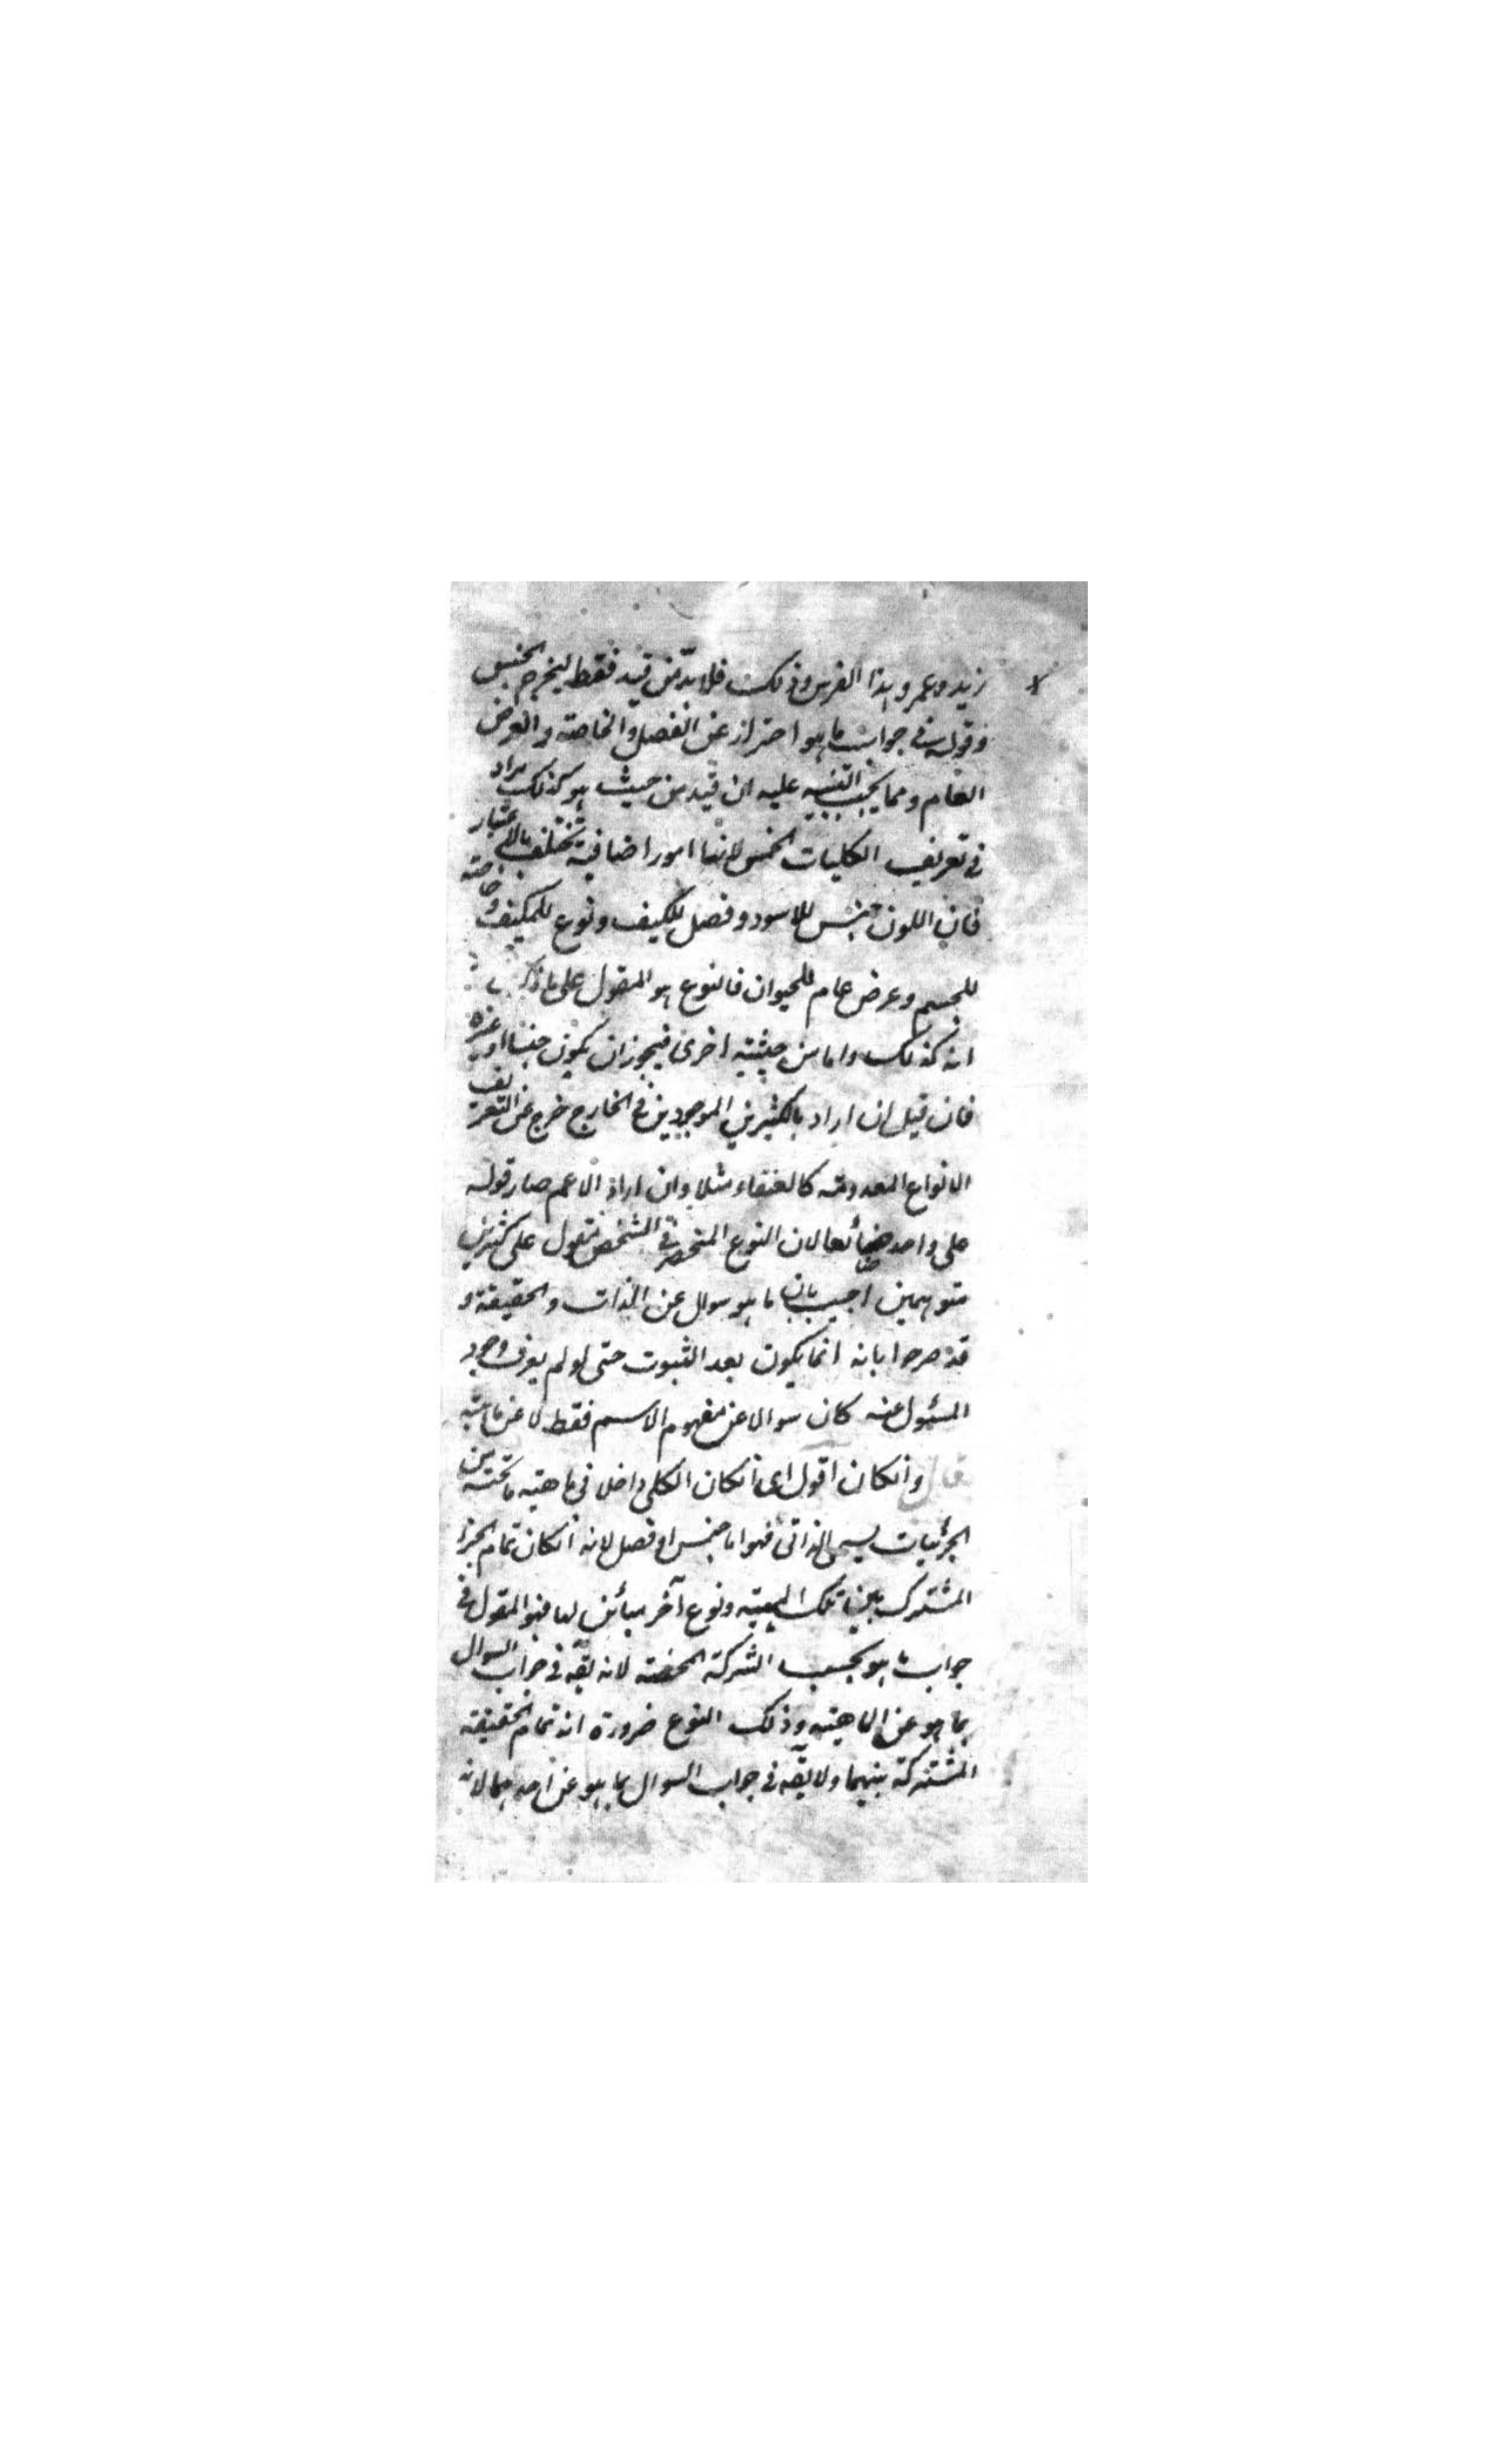 زيد وعمرو وهذا الفرس وذلك فلا بدّ من قيد فقط ليخرج الجنس
وقوله في جواب ما هو احتراز عن الفصل والخاصة والعرض
العام ومما يجب التنبيه عليه ان قيد من حيث هو كذلك مراد
في تعريف الكليات الخمس لانها امور اضافية تختلف بالاعتبار
فان اللون جنس للاسود وفصل للكيف ونوع للمكيف وخاصة
للجسم وعرض عام للحيوان فالنوع هو المقول على ما ذكر
انه كذلك واما من حيثية اخرى فيجوز ان يكون جنسا او غيره
فان قيل ان اراد بالكثيرين الموجودين في الخارج خرج عن التعريف
الانواع المعدومة كالعنقاء مثلا وان اراد الاعم صار قوله
على واحد ضائعا لان النوع المنحصر في الشخص مقول على كثيرين
متوهمين اجيب بان ما هو سوال عن الذات والحقيقة و
قد صرحوا بانه انما يكون بعد الثبوت حتى لو لم يعرف وجود
المسئول عنه كان سوالا عن مفهوم الاسم فقط لا عن ماهيته
قال وانكان اقول اى انكان الكلى داخلا في ماهية ما تحته من
الجزئيات يسمى الذاتى فهو اما جنس او فصل لانه انكان تمام الجزء
المشترك بين تلك الماهية ونوع آخر مبائن لها فهو المقول في
جواب ما هو بحسب الشركة المحضة لانه يقع في جواب السوال
بما هو عن الماهية وذلك النوع ضرورة انه تمام الحقيقة
المشتركة بينهما ولا يقع في جواب السوال بما هو عن احدهما لانه